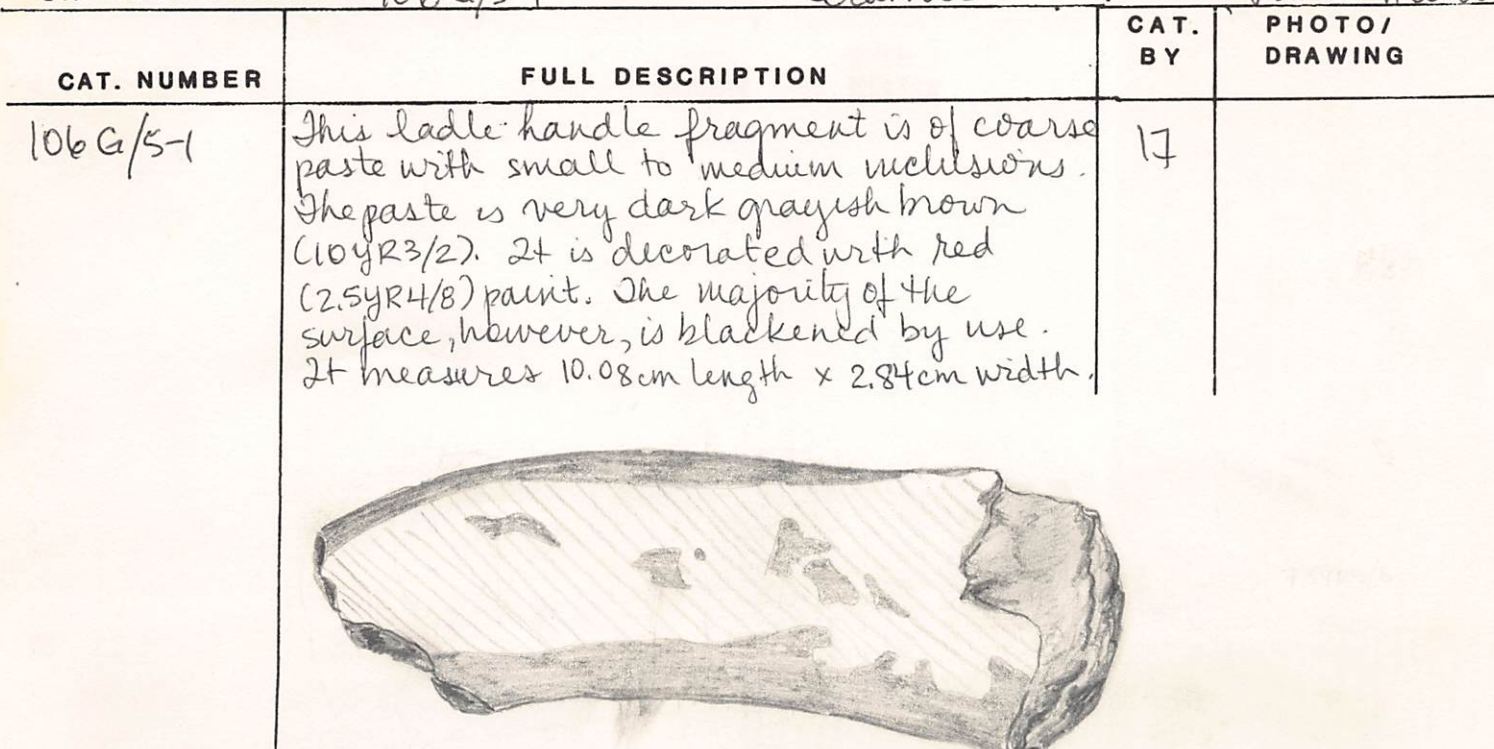 106 G/5-1
CAT. NUMBER
FULL DESCRIPTION
CAT. BY
PHOTO/ DRAWING
106 G/5-1
This ladle handle fragment is of coarse
paste with small to medium inclusions.
The paste is very dark grayish brown
(10YR3/2). It is decorated with red
(2.5YR4/8) paint. The majority of the
surface, however, is blackened by use.
It measures 10.08cm length x 2.84cm width.
17